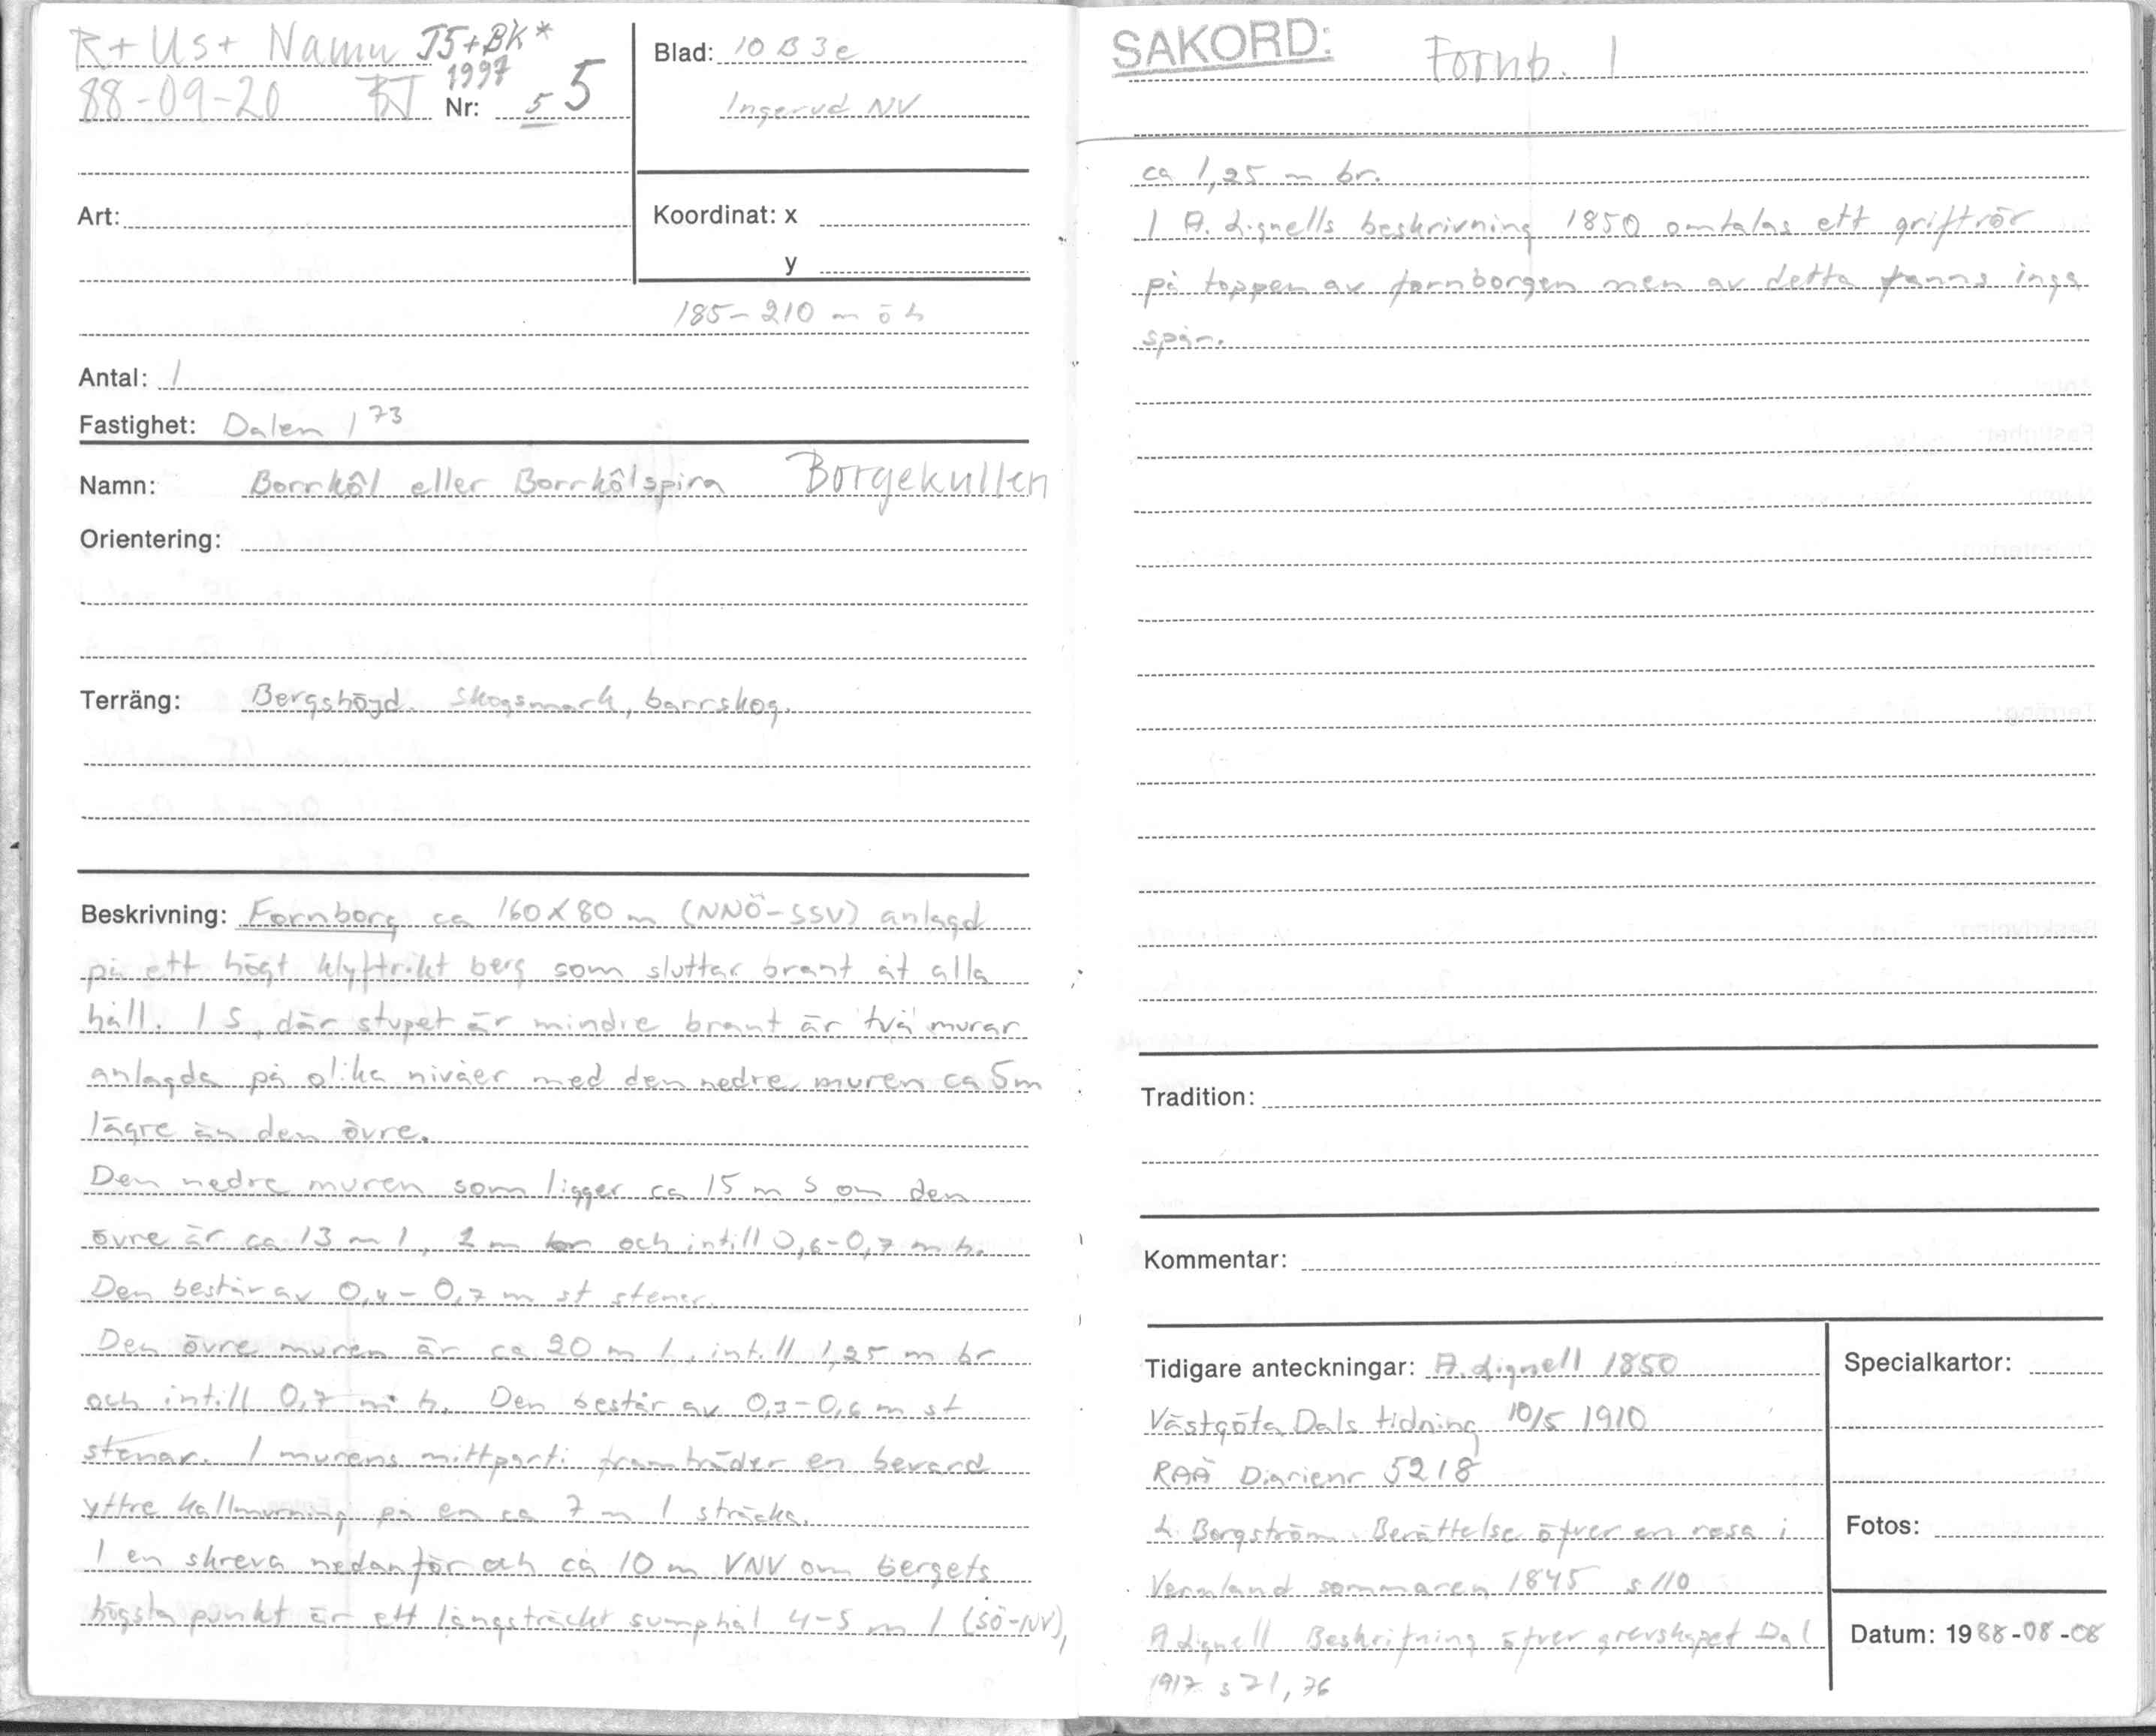 R+Us+ Namn J5+BK*
1997
88-09-20 BJ Nr: 5 5
Blad: 10 B 3e
Ingerud NV
Art:
Koordinat: x
y
185-210 m ö h
Antal: 1
Fastighet: Dalen 1 73
Namn: Borrkôl eller Borrkôlspira Borgekullen
Orientering:
Terräng: Bergshöjd. Skogsmark, barrskog.
Beskrivning: Fornborg ca 160x80 m (NNÖ-SSV) anlagd
på ett högt klyftrikt berg som sluttar brant åt alla
håll. I S, där stupet är mindre brant är två murar
anlagda på olika nivåer med den nedre muren ca 5m
lägre än den övre.
Den nedre muren som ligger ca 15 m S om den
övre är ca 13 m l, 2 m br och intill 0,6-0,7 m h.
Den består av 0,4-0,7 m st stenar.
Den övre muren är ca 20 m l, intill 1,25 m br
och intill 0,7 m h. Den består av 0,3-0,6 m st
stenar. I murens mittparti framträder en bevard
yttre kallmurning på en ca 7 m l sträcka.
I en skreva nedanför och ca 10 m VNV om bergets
högsta punkt är ett långsträckt sumphål 4-5 m l (SÖ-NV),
SAKORD: Fornb. 1
ca 1,25 m br.
I A. Lignells beskrivning 1850 omtalas ett griftrör
på toppen av fornborgen men av detta fanns inga
spår.
Tradition:
Kommentar:
Tidigare anteckningar: A. Lignell 1850
Västgöta Dals tidning 10/5 1910
RAÄ Diarienr 5218
L. Borgström. Berättelse öfver en resa i
Vermland sommaren 1845 s 110
A Lignell Beskrifning öfver grevskapet Dal
1917 s 71, 76
Specialkartor:
Fotos:
Datum: 1988-08-08